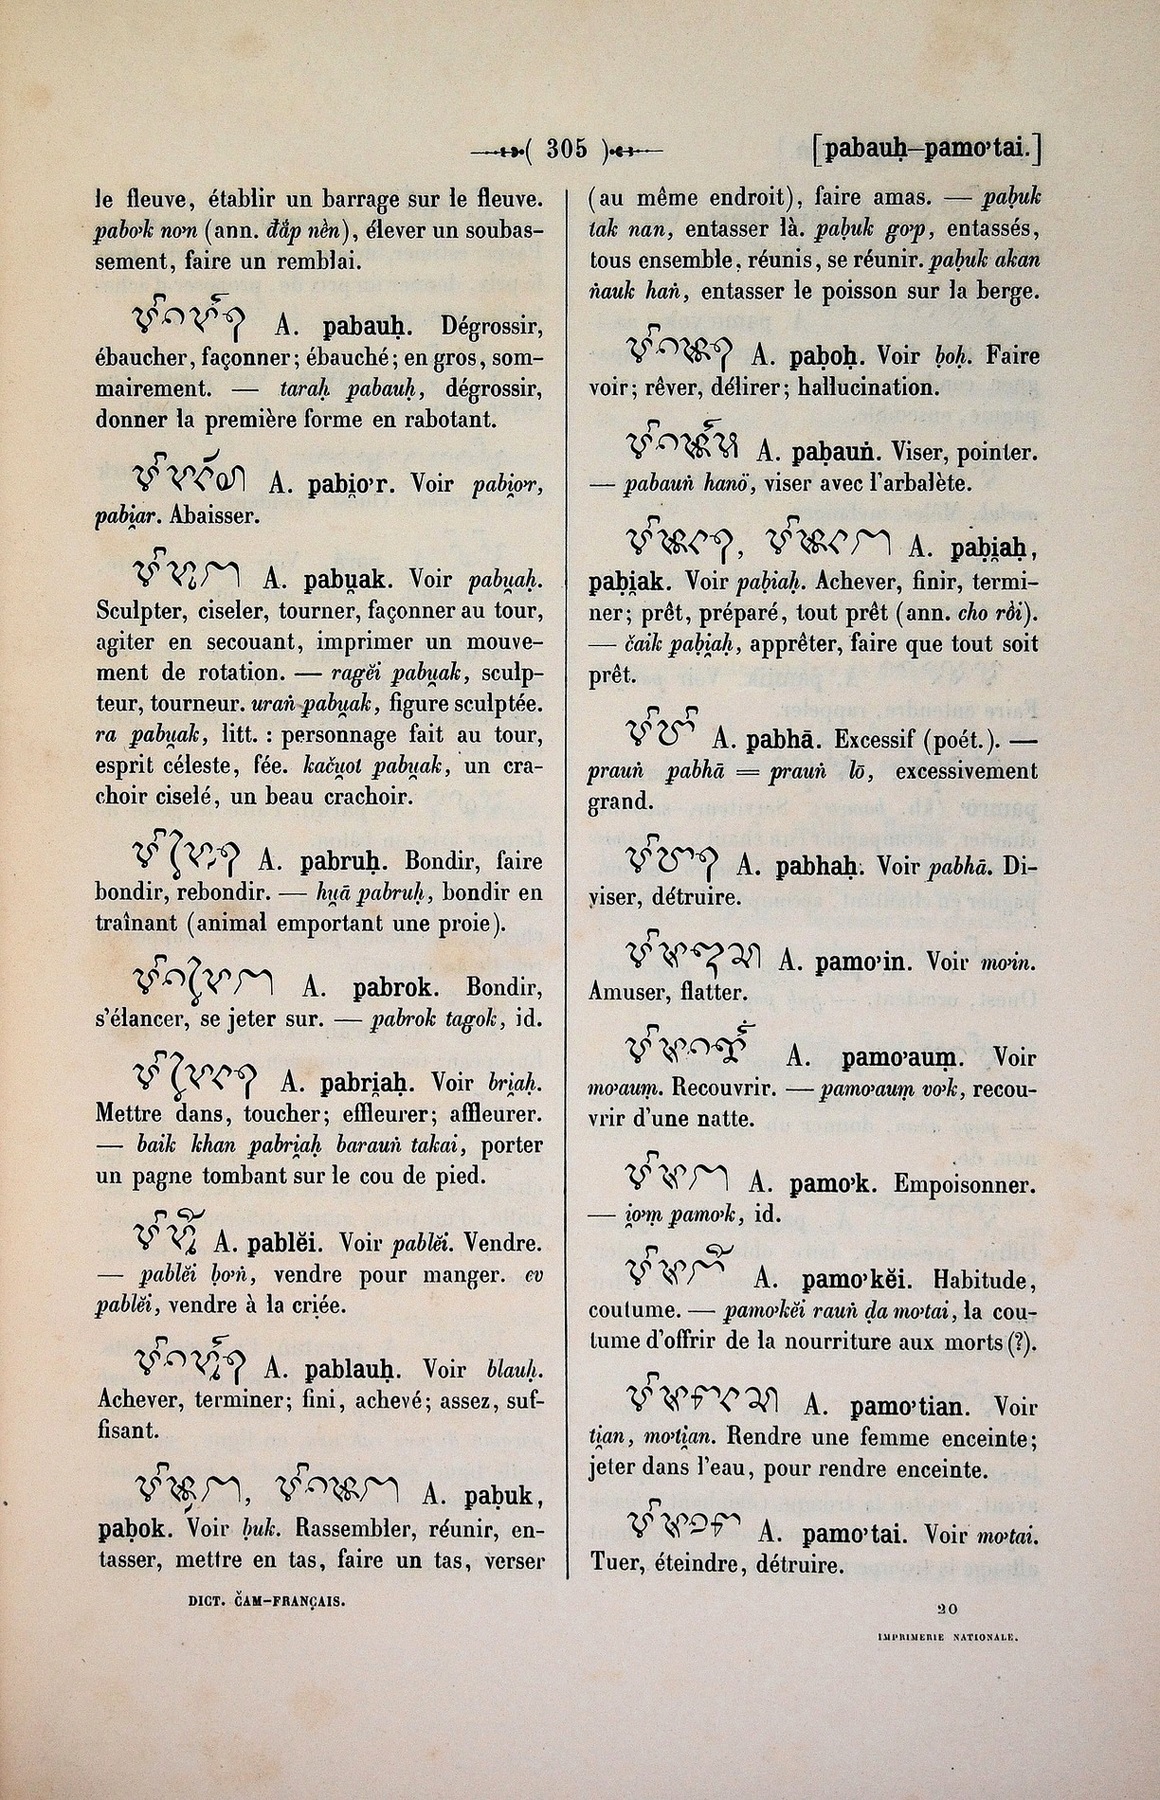 ( 305 )
[pabauḥ—pamo’tai.]
le fleuve, établir un barrage sur le fleuve.
pabo’k no’n (ann. đắp nền), élever un soubas-
sement, faire un remblai.
A. pabauḥ. Dégrossir,
ébaucher, façonner; ébauché; en gros, som-
mairement. — taraḥ pabauḥ, dégrossir,
donner la première forme en rabotant.
A. pabi̯o’r. Voir pabi̯o’r,
pabi̯ar. Abaisser.
A. pabu̯ak. Voir pabu̯aḥ.
Sculpter, ciseler, tourner, façonner au tour,
agiter en secouant, imprimer un mouve-
ment de rotation. — ragĕi pabu̯ak, sculp-
teur, tourneur. uraṅ pabu̯ak, figure sculptée.
ra pabu̯ak, litt. : personnage fait au tour,
esprit céleste, fée. kaču̯ol pabu̯ak, un cra-
choir ciselé, un beau crachoir.
A. pabruḥ. Bondir, faire
bondir, rebondir. — hu̯ā pabruḥ, bondir en
traînant (animal emportant une proie).
A. pabrok. Bondir,
s’élancer, se jeter sur. — pabrok tagok, id.
A. pabri̯aḥ. Voir bri̯aḥ.
Mettre dans, toucher; effleurer; affleurer.
— baik khan pabri̯aḥ barauṅ takai, porter
un pagne tombant sur le cou de pied.
A. pablĕi. Voir pablĕi. Vendre.
— pablĕi ḅo’ṅ, vendre pour manger. ev
pablĕi, vendre à la criée.
A. pablauḥ. Voir blauḥ.
Achever, terminer; fini, achevé; assez, suf-
fisant.
A. paḅuk,
paḅok. Voir ḅuk. Rassembler, réunir, en-
tasser, mettre en tas, faire un tas, verser
DICT. ČAM-FRANÇAIS.
(au même endroit), faire amas. — paḅuk
tak nan, entasser là. paḅuk go’p, entassés,
tous ensemble, réunis, se réunir. paḅuk akan
ṅauk haṅ, entasser le poisson sur la berge.
A. paḅoḥ. Voir ḅoḥ. Faire
voir; rêver, délirer; hallucination.
A. paḅauṅ. Viser, pointer.
— pabauṅ hanö, viser avec l’arbalète.
A. paḅi̯aḥ,
paḅi̯ak. Voir paḅiaḥ. Achever, finir, termi-
ner; prêt, préparé, tout prêt (ann. cho rồi).
— čaik paḅi̯aḥ, apprêter, faire que tout soit
prêt.
A. pabhā. Excessif (poét.). —
prauṅ pabhā = prauṅ lō, excessivement
grand.
A. pabhaḥ. Voir pabhā. Di-
viser, détruire.
A. pamo’in. Voir mo’in.
Amuser, flatter.
A. pamo’auṃ. Voir
mo’auṃ. Recouvrir. — pamo’auṃ vo’k, recou-
vrir d’une natte.
A. pamo’k. Empoisonner.
— i̯o’ṃ pamo’k, id.
A. pamo’kĕi. Habitude,
coutume. — pamo’kĕi rauṅ ḍa mo’tai, la cou-
tume d’offrir de la nourriture aux morts (?).
A. pamo’tian. Voir
ti̯an, mo’ti̯an. Rendre une femme enceinte;
jeter dans l’eau, pour rendre enceinte.
A. pamo’tai. Voir mo’tai.
Tuer, éteindre, détruire.
20
IMPRIMERIE NATIONALE.